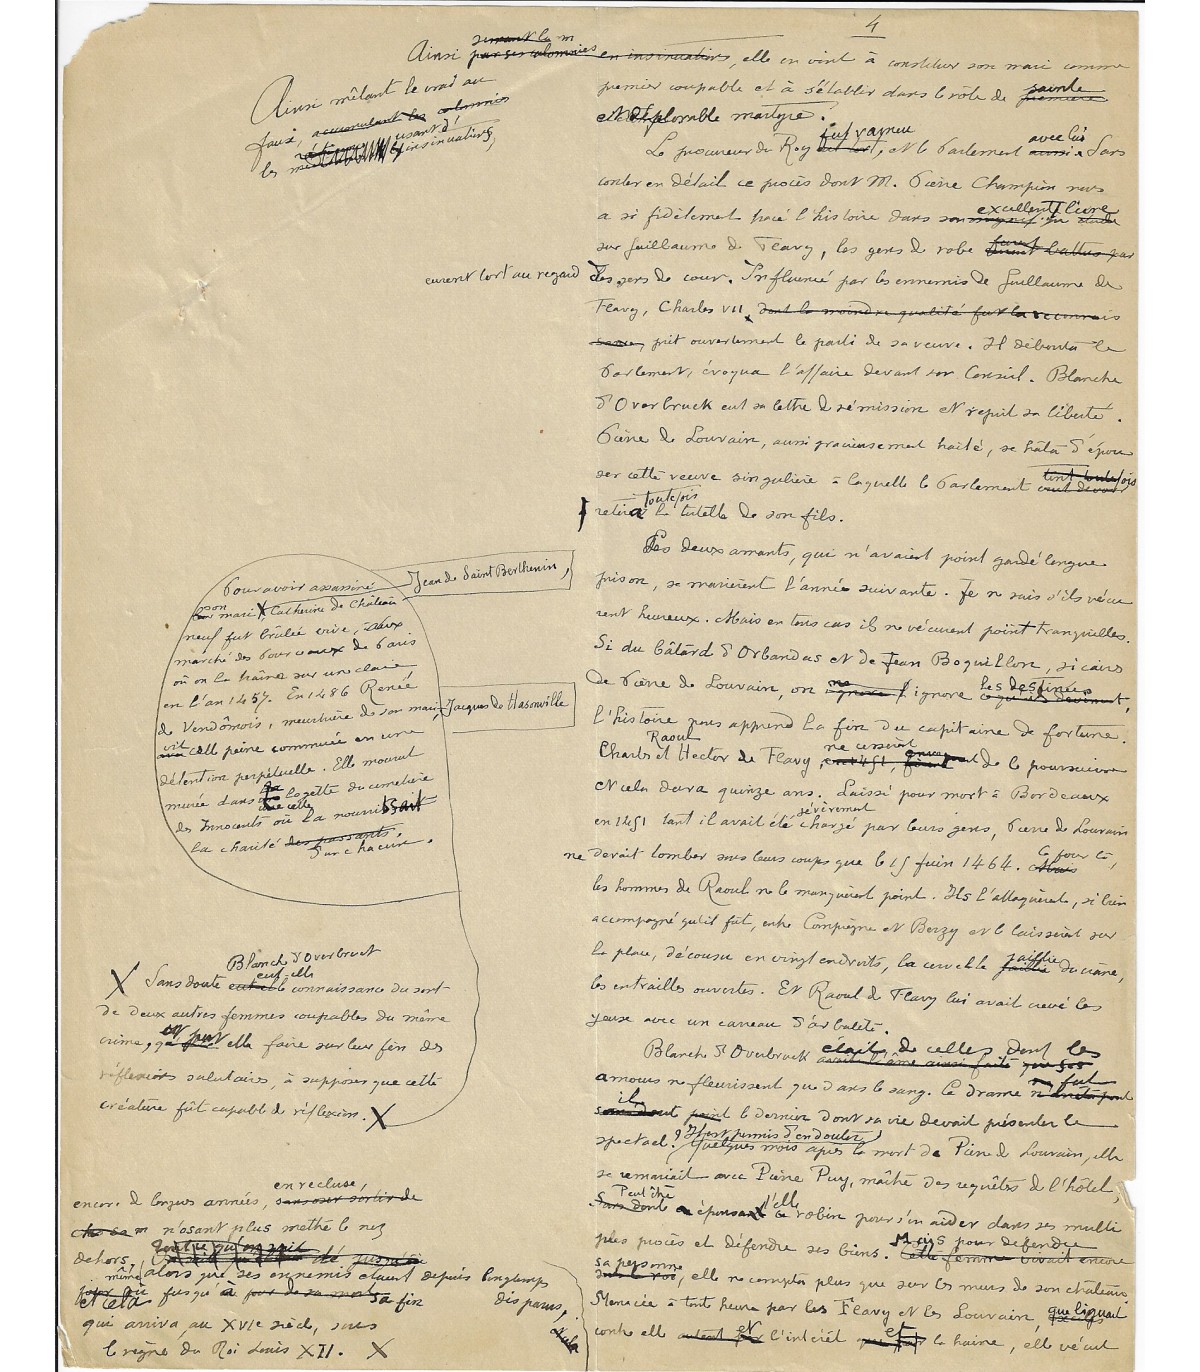 4
Ainsi semant la m
par ses calomnies en insinuations, elle en vint à constituer son mari comme
premier coupable et à s'établir dans le rôle de première sainte
et déplorable martyre.
Le procureur du Roy fut vaincu, et le Parlement aussi avec lui. Sans
conter en détail ce procès dont M. Pierre Champion nous
a si fidèlement tracé l'histoire dans son excellent livre
sur Guillaume de Flavy, les gens de robe furent battus par
eurent tort au regard des gens de cour. Influencé par les ennemis de Guillaume de
Flavy, Charles VII, dont la moindre qualité fut la reconnais
sance, prit ouvertement le parti de sa veuve. Il débouta le
Parlement, évoqua l'affaire devant son Conseil. Blanche
d'Overbruck eut sa lettre de rémission et reprit sa liberté.
Pierre de Louvain, aussi gracieusement traité, se hâta d'épou
ser cette veuve singulière à laquelle le Parlement tint toutefois
retira toutefois la tutelle de son fils.
Les deux amants, qui n'avaient point gardé longue
prison, se marièrent l'année suivante. Je ne sais s'ils vécu
rent heureux. Mais en tous cas ils ne vécurent point tranquilles.
Si du bâtard d'Orbandas et de Jean Boquillon, sicaires
de Pierre de Louvain, on ignore les destinées,
l'histoire nous apprend la fin du capitaine de fortune.
Charles, Raoul et Hector de Flavy, en 1451, ne cessèrent de le poursuivre
et cela dura quinze ans. Laissé pour mort à Bordeaux
en 1451 tant il avait été sévèrement chargé par leurs gens, Pierre de Louvain
ne devait tomber sous leurs coups que le 15 Juin 1464. Mais ce jour là,
les hommes de Raoul ne le manquèrent point. Ils l'attaquèrent, si bien
accompagné qu'il fût, entre Compiègne et Berzy et le laissèrent sur
la place, décousu en vingt endroits, la cervelle jaillie du crâne,
les entrailles ouvertes. Et Raoul de Flavy lui avait crevé les
yeux avec un carreau d'arbalète.
Blanche d'Overbruck était de celles dont les
avait l'âme ainsi faite que ses
amours ne fleurissent que dans le sang. Ce drame ne fut
il point le dernier dont sa vie devait présenter le
spectacle ? Il est permis d'en douter !
Quelques mois après la mort de Pierre de Louvain, elle
se remariait avec Pierre Puy, maître des requêtes de l'hôtel,
Sans doute Peut être épousait-elle ce robin pour s'en aider dans ses multi
ples procès et défendre ses biens. Mais pour défendre
Cette femme vivait encore
sa personne, elle ne compta plus que sur les murs de son château.
Menacée à toute heure par les Flavy et les Louvain, que liguait
contre elle autant et l'intérêt et la haine, elle vécut
Ainsi mêlant le vrai au
faux, accumulant les calomnies
usant d'
les insinuations,
Pour avoir assassiné
son mari X Catherine de Château
neuf fut brûlée vive, au
marché des Pourceaux de Paris
où on la traîna sur une claie
en l'an 1457. En 1486 Renée
de Vendômois, meurtrière de son mari,
vit cette peine commuée en une
détention perpétuelle. Elle mourut
murée dans la logette du cimetière
des Innocents où la nourrissait
la charité des passants.
d'un chacun.
Jean de Saint Berthenin,
Jacques de Hasonville
X Sans doute Blanche d'Overbruck
eut-elle connaissance du sort
de deux autres femmes coupables du même
crime, et put elle faire sur leur fin des
réflexions salutaires, à supposer que cette
créature fût capable de réflexion. X
encore de longues années, en recluse,
sans oser sortir de
n'osant plus mettre le nez
dehors,
même alors que ses ennemis étaient depuis longtemps
disparus,
et cela jusqu'à jour de sa mort sa fin
qui arriva, au XVIe siècle, sous
le règne du Roi Louis XII. X